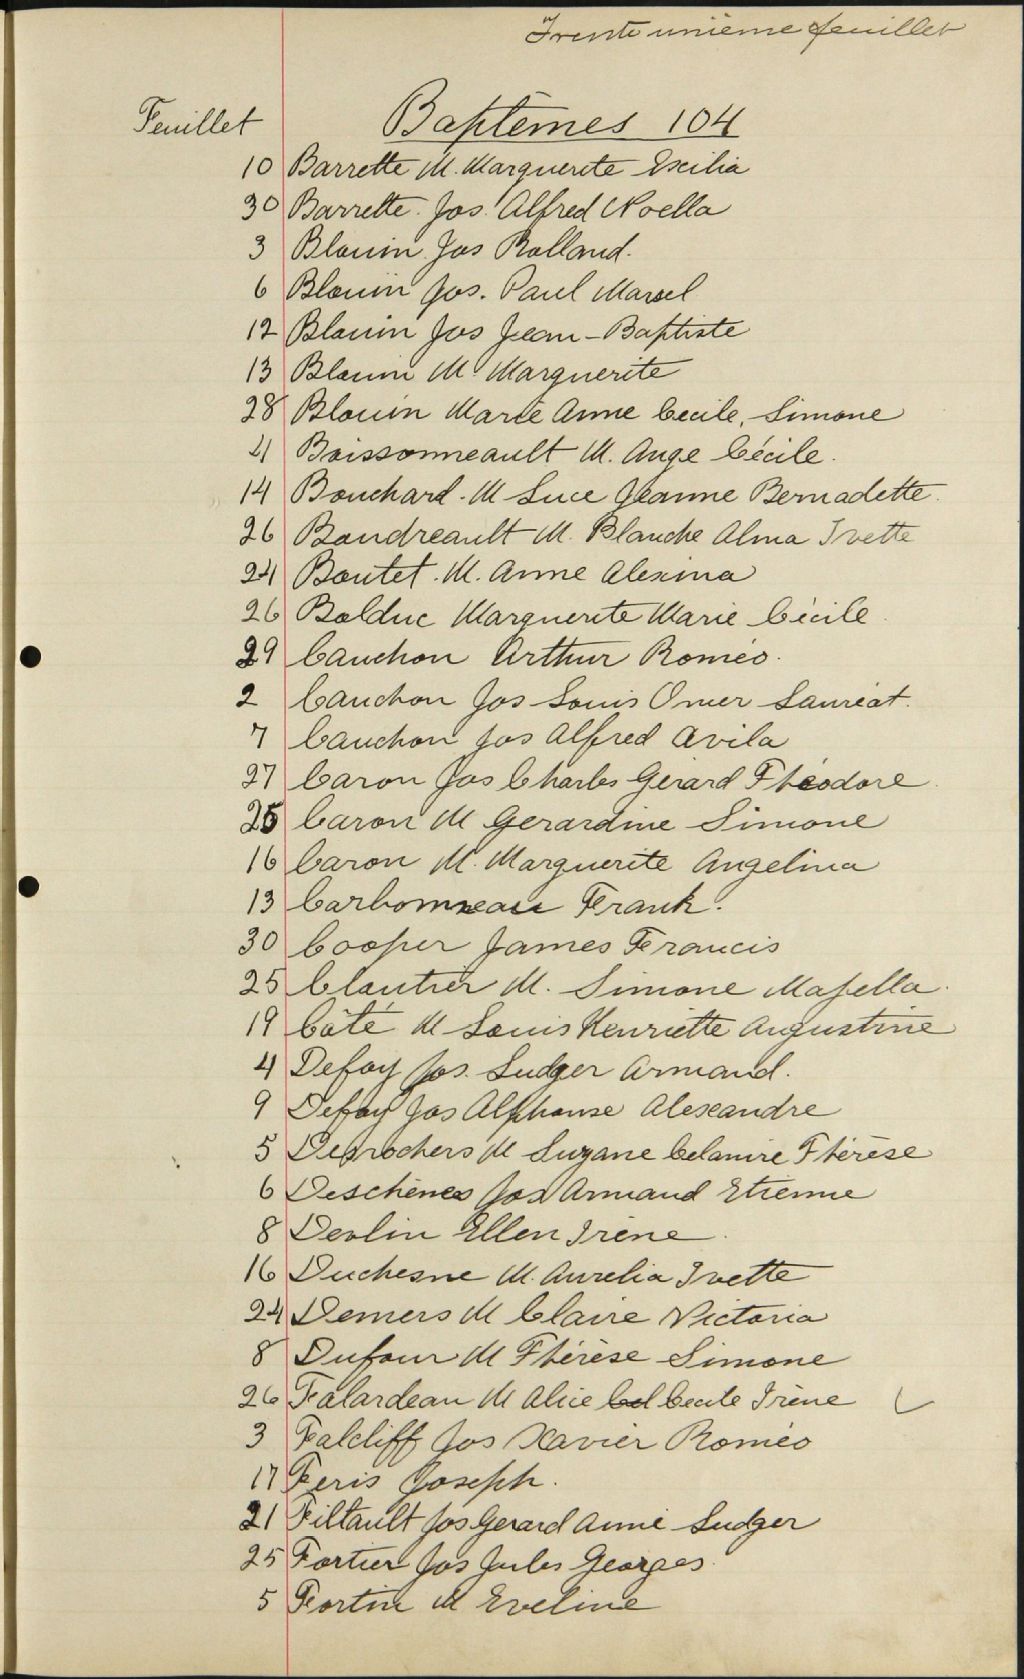 Trente unième feuillet
Feuillet Baptêmes 104
10 Barrette M. Marguerite Excilia
30 Barrette Jos. Alfred Noella
3 Blouin Jos Rolland.
6 Blouin Jos. Paul Marcel
12 Blouin Jos Jean-Baptiste
13 Blouin M. Marguerite
28 Blouin Marie Anne Cecile, Simone
4 Boissonneault M. Ange Cécile.
14 Bouchard. M Luce Jeanne Bernadette.
26 Boudreault M. Blanche Alma Ivette
24 Boutet. M. Anne Alexina
26 Bolduc Marguerite Marie Cécile.
29 Cauchon Arthur Roméo.
2 Cauchon Jos Louis Omer Lauréat.
7 Cauchon Jos Alfred Avila
27 Caron Jos Charles Gérard Théodore.
25 Caron M Gerardine Simone
16 Caron M. Marguerite Angelina
13 Carbonneau Frank.
30 Cooper James Francis
25 Cloutier M. Simone Majella.
19 Côté M Louis Henriette Augustine
4 Defoy Jos. Ludger Armand.
9 Defoy Jos Alphonse Alexandre
5 Desrochers M Suzane Celanire Thérèse
6 Deschènes Jos Armand Etienne
8 Devlin Ellen Irène.
16 Duchesne M. Aurelia Ivette
24 Demers M Claire Victoria
8 Dufour M Thérèse Simone
26 Falardeau M Alice Cecile Irène
3 Falcliff Jos Xavier Roméo
17 Feris Joseph.
21 Filtault Jos Gerard Aimé Ludger
25 Fortier Jos Jules Georges.
5 Fortin M Eveline